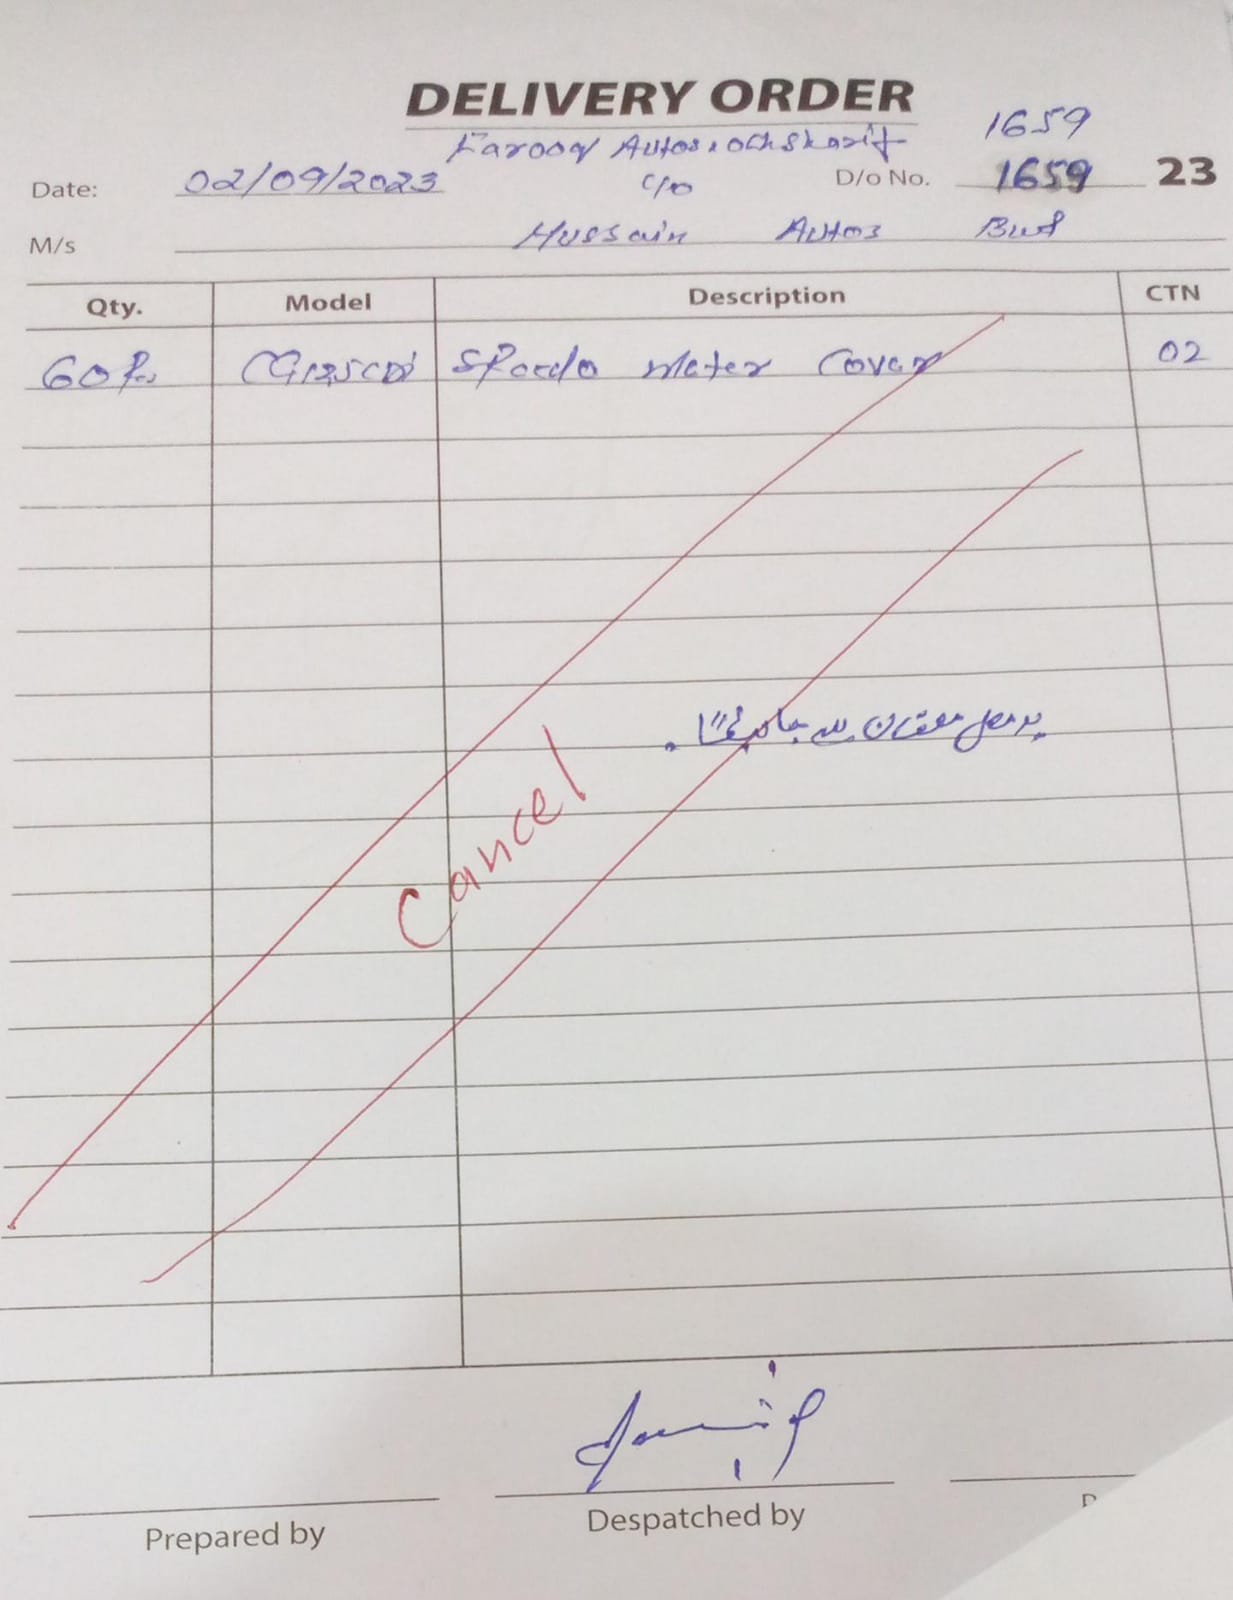 DELIVERY ORDER
Farooq Autos, ochsharif 1659
Date: 02/09/2023 c/o D/o No. 1659 23
M/s Hussain Autos Bwp
Qty. Model Description CTN
60 Ps Speedo Meter Cover 02
یہ مال
Cancel
Prepared by
Despatched by